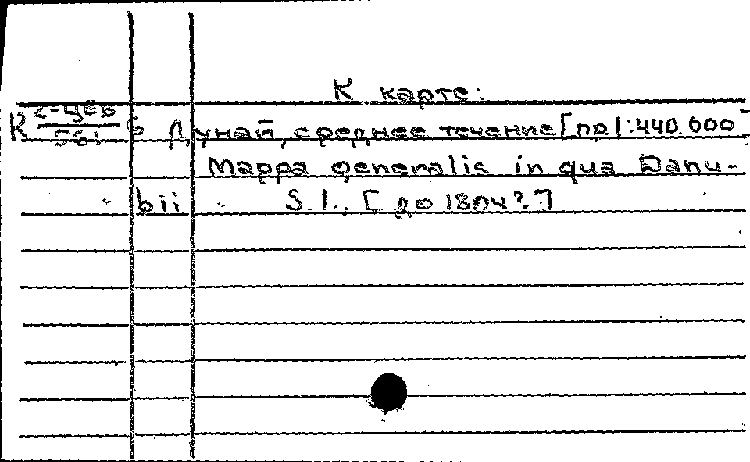 К карте:
К Дунай, среднее течение [ок 1:440.000
Mappa generalis in qua Danu-
bii S.l., [до 1804?]